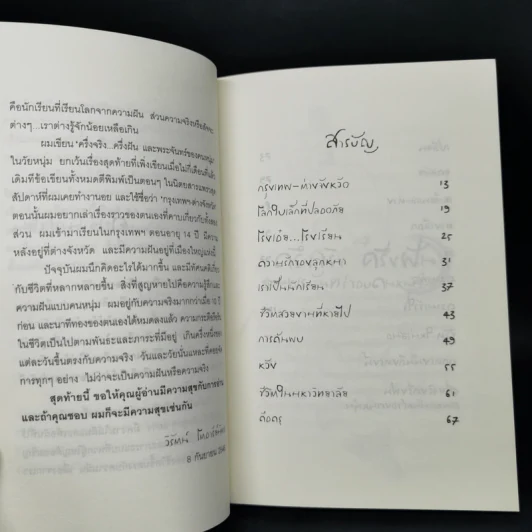 คือนักเรียนที่เรียนโลกจากความฝัน ส่วนความจริงหรือสัจจะ
ต่างๆ...เราต่างรู้จักน้อยเหลือเกิน
ผมเขียน "ครึ่งจริง...ครึ่งฝัน และพระจันทร์ของคนหนุ่ม
ในวัยหนุ่ม ยกเว้นเรื่องสุดท้ายที่เพิ่งเขียนเมื่อไม่กี่เดือนที่แล้ว
เดิมทีข้อเขียนทั้งหมดตีพิมพ์เป็นตอนๆ ในนิตยสาร
สัปดาห์ที่ผมเคยทำงานอยู่ และใช้ชื่อว่า 'กรุงเทพฯ-ต่างจังหวัด
ตอนนั้นผมอยากเล่าเรื่องราวของตนเองที่คาบเกี่ยวกับทั้งสอง
ส่วน ผมเข้ามาเรียนในกรุงเทพฯ ตอนอายุ 14 ปี มีความ
หลังอยู่ที่ต่างจังหวัด และมีความฝันอยู่ที่เมืองใหญ่แห่งนี้
ปัจจุบันผมนึกคิดอะไรได้มากขึ้น และมีทัศนคติเกี่ยว
กับชีวิตที่หลากหลายขึ้น สิ่งที่สูญหายไปคือความรู้สึก
ความฝันแบบคนหนุ่ม ผมอยู่กับความจริงมากกว่าเมื่อ 10 ปี
ก่อน และนาทีทองของตนเองได้หมดลงแล้ว ความกระตือรือร้น
ในชีวิตเป็นไปตามพันธะและภาระที่มีอยู่ เกินครึ่งหนึ่งของ
แต่ละวันขึ้นตรงกับความจริง วันและวัยนั้นแหละที่คอย
การทุกๆ อย่าง ไม่ว่าจะเป็นความฝันหรือความจริง
สุดท้ายนี้ ขอให้คุณผู้อ่านมีความสุขกับการอ่าน
และถ้าคุณชอบ ผมก็จะมีความสุขเช่นกัน
8 กันยายน
สารบัญ
กรุงเทพ-ต่างจังหวัด 13
โลกใบเล็กที่ปลอดภัย 19
โรงเอ๋ย...โรงเรียน 25
ความรักของลูกหมา 31
เราเป็นนักเรียน 37
ชีวิตสวยงามที่หายไป 43
การค้นพบ 49
หวัง 55
ชีวิตในมหาวิทยาลัย 61
67